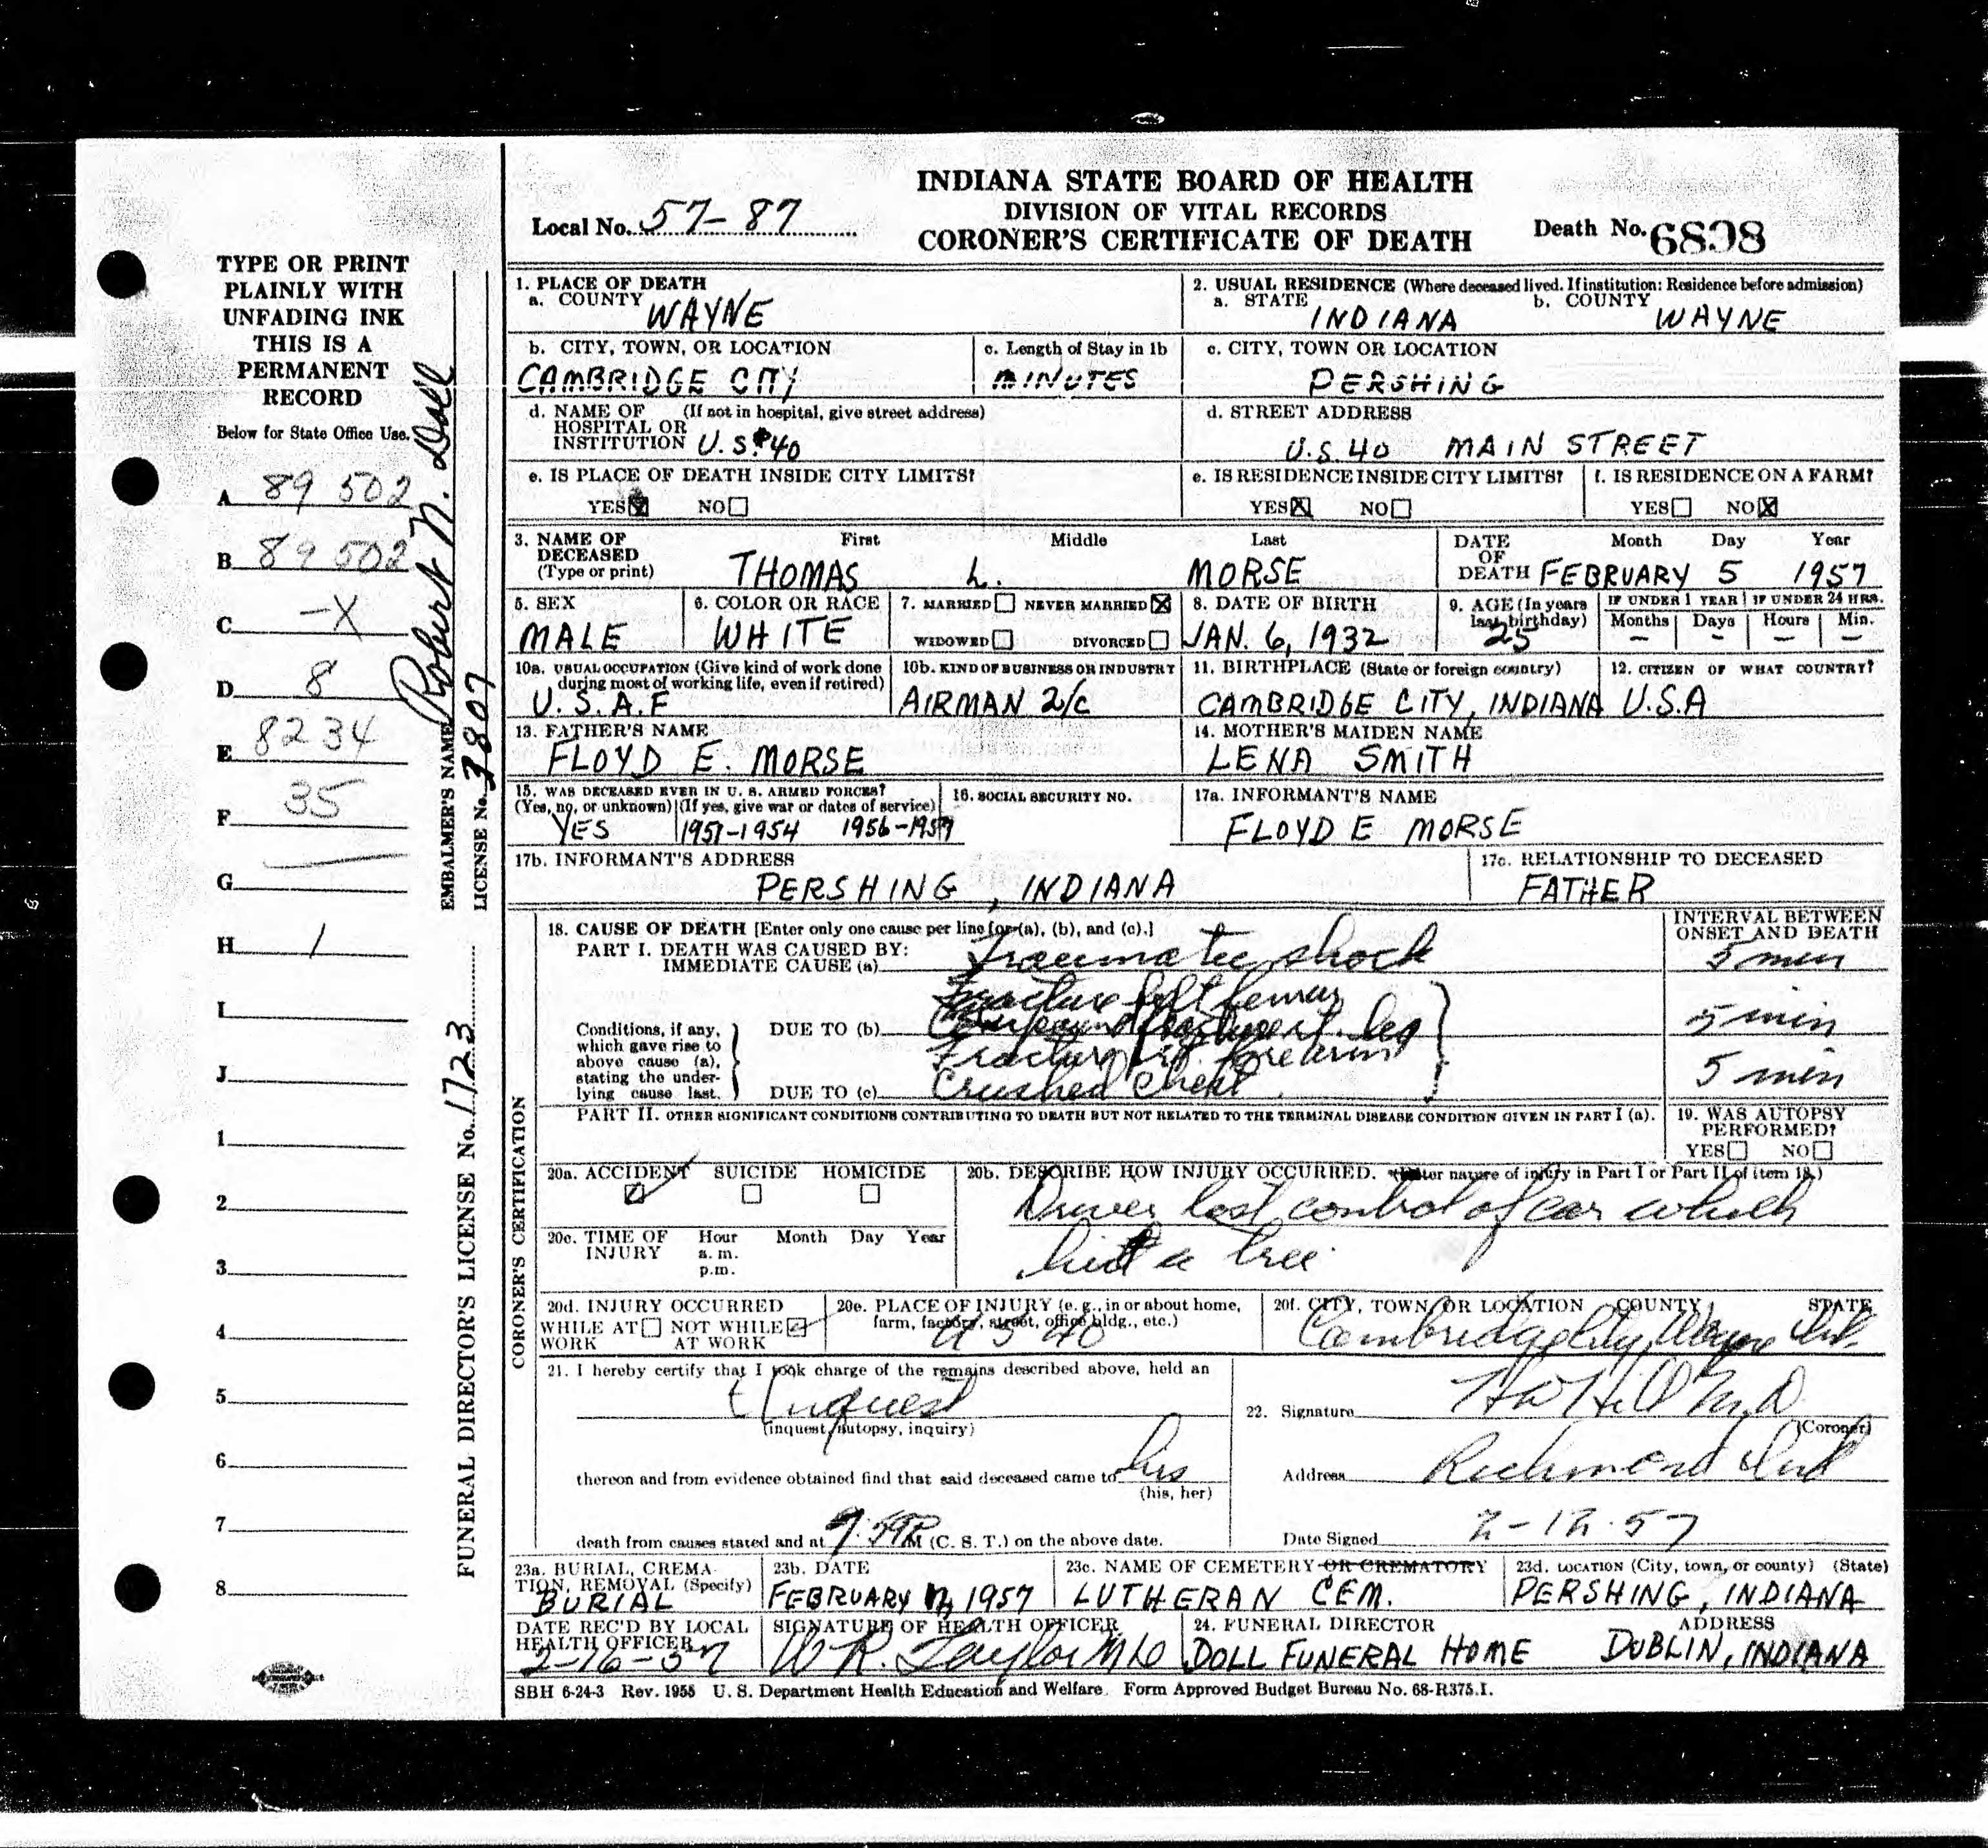 INDIANA STATE BOARD OF HEALTH
DIVISION OF VITAL RECORDS
CORONER'S CERTIFICATE OF DEATH
Local No. 57-87
Death No. 6898
TYPE OR PRINT
PLAINLY WITH
UNFADING INK
THIS IS A
PERMANENT
RECORD
Below for State Office Use.
A 89 502
B 89 502
C -X
D 8
E 8234
F 35
G
H 1
I
J
1
2
3
4
5
6
7
8
EMBALMER'S NAME Robert N. Doll
LICENSE No. 3807
FUNERAL DIRECTOR'S LICENSE No. 1723
1. PLACE OF DEATH
a. COUNTY WAYNE
2. USUAL RESIDENCE (Where deceased lived. If institution: Residence before admission)
a. STATE INDIANA b. COUNTY WAYNE
b. CITY, TOWN, OR LOCATION
CAMBRIDGE CITY
c. Length of Stay in 1b
MINUTES
c. CITY, TOWN OR LOCATION
PERSHING
d. NAME OF (If not in hospital, give street address)
HOSPITAL OR
INSTITUTION U.S. 40
d. STREET ADDRESS
U.S. 40 MAIN STREET
e. IS PLACE OF DEATH INSIDE CITY LIMITS?
YES X NO
e. IS RESIDENCE INSIDE CITY LIMITS?
YES X NO
f. IS RESIDENCE ON A FARM?
YES NO X
3. NAME OF DECEASED (Type or print)
First Middle Last
THOMAS L. MORSE
DATE OF DEATH Month Day Year
FEBRUARY 5 1957
5. SEX
MALE
6. COLOR OR RACE
WHITE
7. MARRIED NEVER MARRIED X
WIDOWED DIVORCED
8. DATE OF BIRTH
JAN. 6, 1932
9. AGE (In years last birthday)
25
IF UNDER 1 YEAR IF UNDER 24 HRS.
Months Days Hours Min.
– – – –
10a. USUAL OCCUPATION (Give kind of work done
during most of working life, even if retired)
U.S.A.F
10b. KIND OF BUSINESS OR INDUSTRY
AIRMAN 2/C
11. BIRTHPLACE (State or foreign country)
CAMBRIDGE CITY, INDIANA
12. CITIZEN OF WHAT COUNTRY?
U.S.A
13. FATHER'S NAME
FLOYD E. MORSE
14. MOTHER'S MAIDEN NAME
LENA SMITH
15. WAS DECEASED EVER IN U. S. ARMED FORCES?
(Yes, no, or unknown) (If yes, give war or dates of service)
YES 1951-1954 1956-1957
16. SOCIAL SECURITY NO.
17a. INFORMANT'S NAME
FLOYD E MORSE
17b. INFORMANT'S ADDRESS
PERSHING, INDIANA
17c. RELATIONSHIP TO DECEASED
FATHER
18. CAUSE OF DEATH [Enter only one cause per line for (a), (b), and (c).]
INTERVAL BETWEEN
ONSET AND DEATH
PART I. DEATH WAS CAUSED BY:
IMMEDIATE CAUSE (a) Traumatic shock 5 min
Fracture left femur
Conditions, if any,
which gave rise to
above cause (a),
stating the under-
lying cause last.
DUE TO (b) Compound fracture rt. leg 5 min
Fracture rt. forearm 5 min
DUE TO (c) Crushed Chest
PART II. OTHER SIGNIFICANT CONDITIONS CONTRIBUTING TO DEATH BUT NOT RELATED TO THE TERMINAL DISEASE CONDITION GIVEN IN PART I (a).
19. WAS AUTOPSY
PERFORMED?
YES NO
CORONER'S CERTIFICATION
20a. ACCIDENT SUICIDE HOMICIDE
20b. DESCRIBE HOW INJURY OCCURRED. (Enter nature of injury in Part I or Part II of item 18.)
Driver lost control of car which
hit a tree
20c. TIME OF INJURY Hour Month Day Year
a. m.
p.m.
20d. INJURY OCCURRED
WHILE AT WORK NOT WHILE AT WORK
20e. PLACE OF INJURY (e. g., in or about home,
farm, factory, street, office bldg., etc.)
U S 40
20f. CITY, TOWN, OR LOCATION COUNTY STATE
Cambridge City, Wayne Ind.
21. I hereby certify that I took charge of the remains described above, held an
Inquest
(inquest, autopsy, inquiry)
thereon and from evidence obtained find that said deceased came to his
(his, her)
death from causes stated and at 9:59P M (C. S. T.) on the above date.
22. Signature H W Hill M.D
(Coroner)
Address Richmond Ind
Date Signed 2-12-57
23a. BURIAL, CREMATION, REMOVAL (Specify)
BURIAL
23b. DATE
FEBRUARY 1957
23c. NAME OF CEMETERY OR CREMATORY
LUTHERAN CEM.
23d. LOCATION (City, town, or county) (State)
PERSHING, INDIANA
DATE REC'D BY LOCAL
HEALTH OFFICER
2-16-57
SIGNATURE OF HEALTH OFFICER
W R. Taylor MD
24. FUNERAL DIRECTOR ADDRESS
DOLL FUNERAL HOME DUBLIN, INDIANA
SBH 6-24-3 Rev. 1955 U. S. Department Health Education and Welfare. Form Approved Budget Bureau No. 68-R375.1.